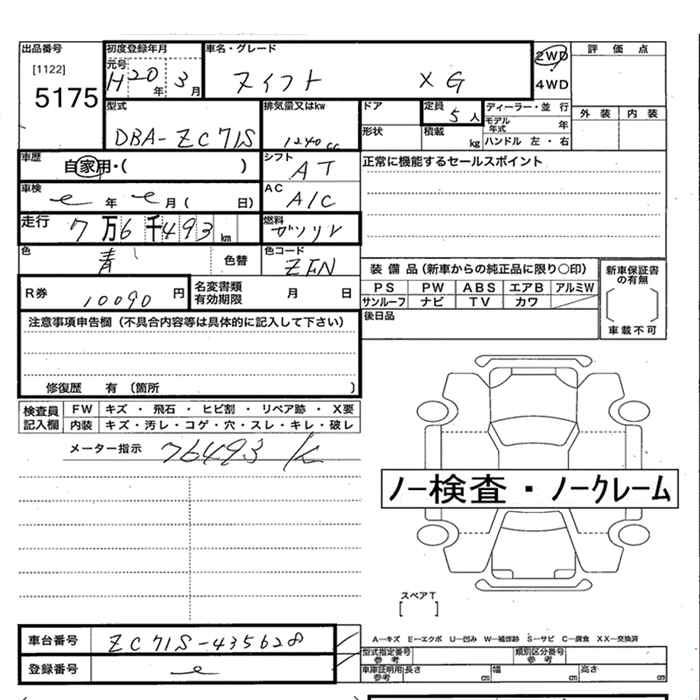 出品番号 初度登録年月 車名・グレード 2WD 評価点
[1122] 元号 H20年 3月 スイフト XG 4WD
5175
型式 排気量又はkw ドア 定員 5人 ディーラー・並行 外装 内装
DBA-ZC71S 1240cc 形状 積載 kg モデル年式 年
ハンドル 左・右
車歴 自家用・( ) シフト AT 正常に機能するセールスポイント
車検 年 月( 日) AC A/C
走行 7万6千493km 燃料 ガソリン
色 青 色替 色コード ZFN
R券 10090円 名変書類有効期限 月 日
装備品(新車からの純正品に限り○印) 新車保証書の有無
PS PW ABS エアB アルミW
サンルーフ ナビ TV カワ
車載不可
後日品
注意事項申告欄(不具合内容等は具体的に記入して下さい)
修復歴 有(箇所 )
検査員記入欄 FW キズ・飛石・ヒビ割・リペア跡・X要
内装 キズ・汚レ・コゲ・穴・スレ・キレ・破レ
メーター指示 76493 K
ノー検査・ノークレーム
スペアT
[ ]
車台番号 ZC71S-435628
登録番号
A-キズ E-エクボ U-凹み W-補修跡 S-サビ C-腐食 XX-交換済
型式指定番号 参考 類別区分番号 参考
車庫証明用参考 長さ cm 幅 cm 高さ cm